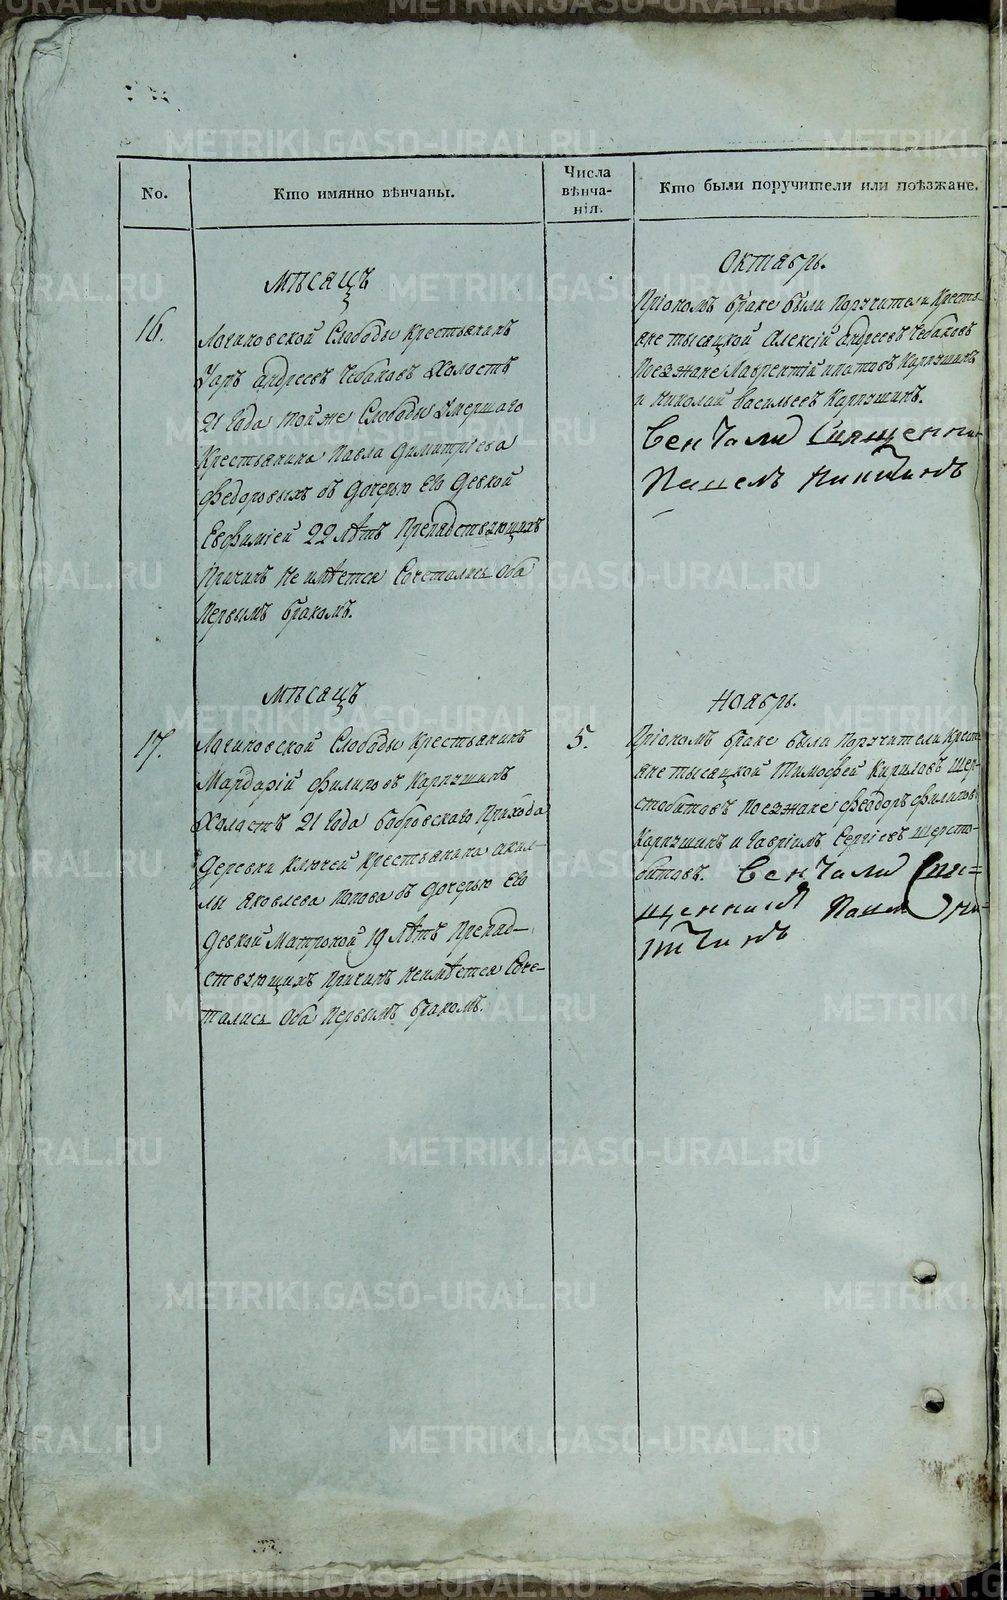 No.
Кто имянно вѣнчаны.
Числа
вѣнча-
нія.
Кто были поручители или поѣзжане.
Мѣсяцъ
16.
Логиновской Слободы крестьянинъ
Уаръ андреевъ Чебаковъ Холостъ
21 года той же Слободы умершаго
Крестьянина Павла Димитріева
Федоровыхъ съ дочерью Ево девкой
Евфиміей 22 лѣтъ Препадствующихъ
Причинъ не имѣется Сочетались оба
первымъ бракомъ.
Октябрь.
Пріономъ браке были Поручители Кресть-
яне тысяцкой Алексій андреевъ Чебаковъ
Поезжане Лаврентій Карпушинъ
и Николай васильевъ Карпушинъ.
Венчали Священни
Никитинъ
Мѣсяцъ
17.
Логиновской Слободы Крестьянинъ
Мардарій филиповъ Карпушинъ
Холостъ 21 года бобровскаго Прихода
деревни Ключей Крестьянина акил-
лы яковлева Попова съ дочерью Ево
девкой Матроной 19 лѣтъ Препад-
ствующихъ причинъ неимѣется Соче-
тались оба первымъ бракомъ.
5.
Ноябрь.
Пріономъ браке были Поручители Кресть
яне тысяцкой Тимофей Кириловъ шер-
стобитовъ Поезжане феодоръ филиповъ
Карпушинъ и гавріилъ Сергіевъ шерсто-
битовъ. Венчали Свя=
щенникъ
METRIKI.GASO-URAL.RU